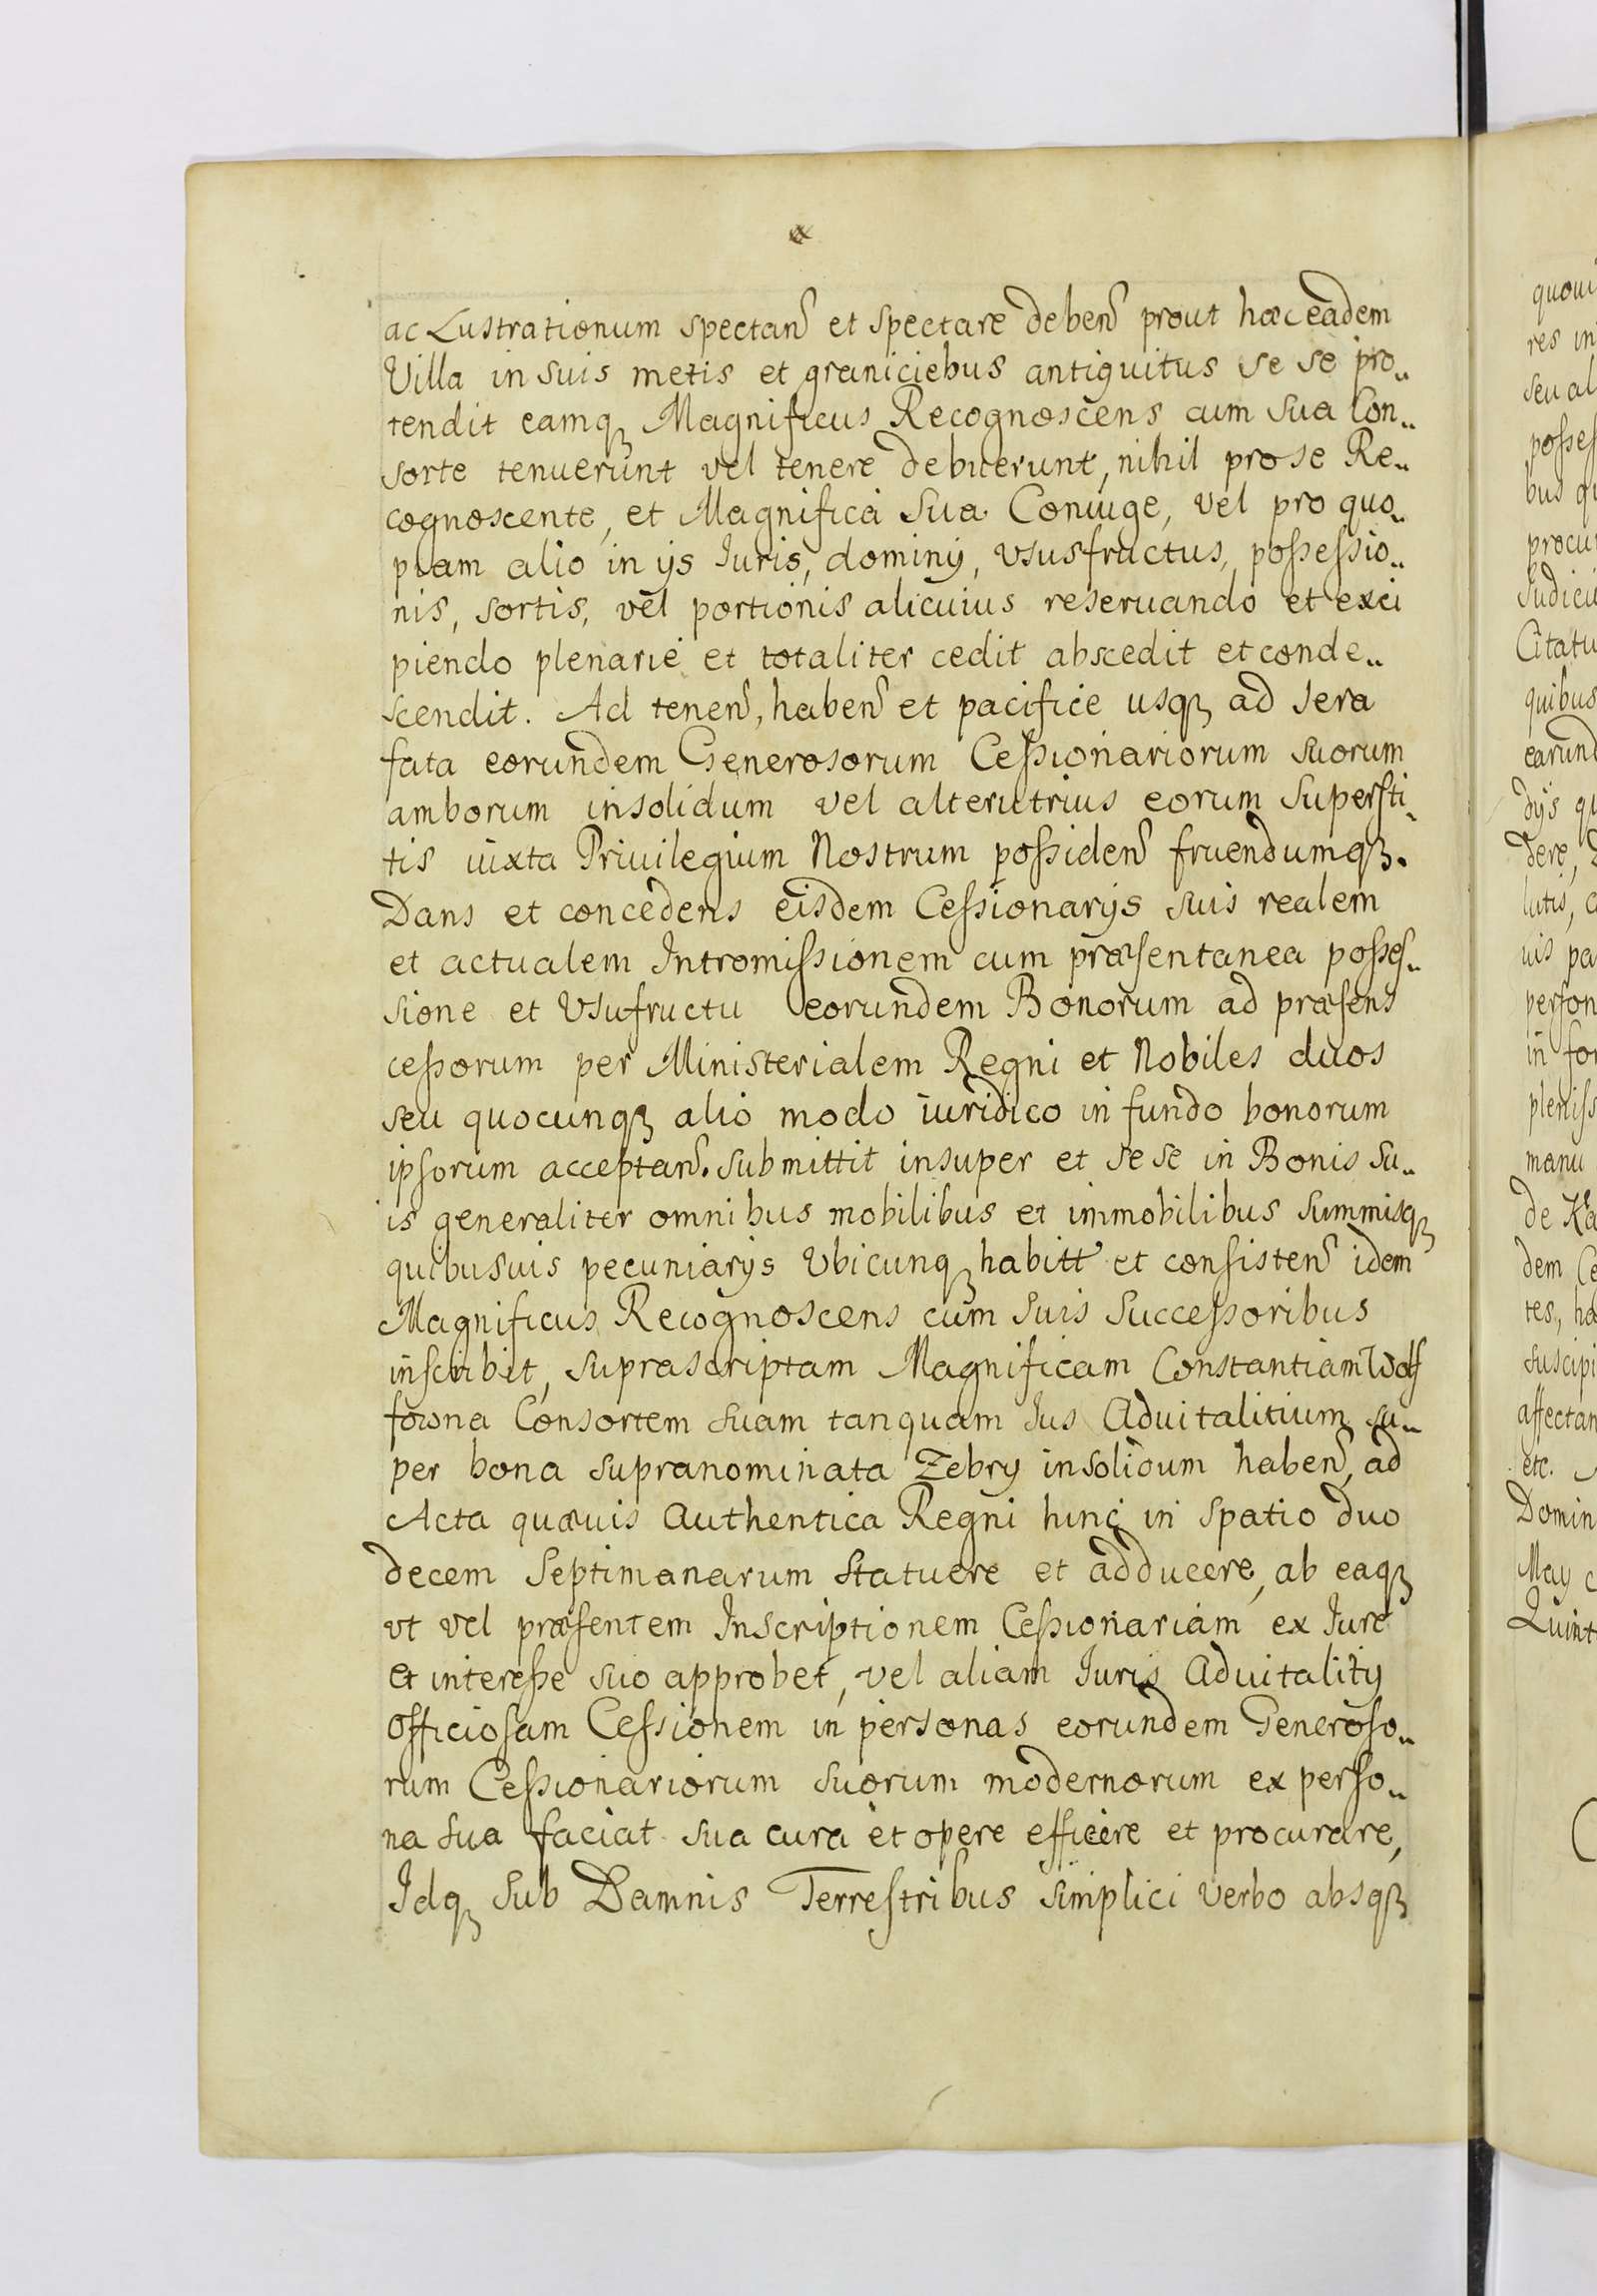 ac Lustrationum spectan et spectare deben prout hæc eadem
Villa in suis metis et graniciebus antiquitus se se pro„
tendit eamq Magnificus Recognoscens cum sua Con„
sorte tenuerunt vel tenere debuerunt, nihil pro se Re„
cognoscente, et Magnifica Sua Coniuge, vel pro quo„
piam alio in ijs Iuris, dominij, vsusfructus, possessio„
nis, sortis, vel portionis alicuius reseruando et exci
piendo plenarie et totaliter cedit abscedit et conde„
scendit. Ad tenen, haben et pacifice usq ad sera
fata eorundem Generosorum Cessionariorum suorum
amborum insolidum vel alterutrius eorum Supersti„
tis iuxta Priuilegium Nostrum possiden fruendumq.
Dans et concedens eisdem Cessionarijs suis realem
et actualem Intromissionem cum præsentanea posses„
sione et Vsufructu eorundem Bonorum ad præsens
cessorum per Ministerialem Regni et Nobiles duos
seu quocunq alio modo iuridico in fundo bonorum
ipsorum acceptan. Submittit insuper et se se in Bonis su„
is generaliter omnibus mobilibus et immobilibus summisq
quibusuis pecuniarijs Vbicunq habitt et consisten idem
Magnificus Recognoscens cum Suis Successoribus
inscribit, suprascriptam Magnificam Constantiam Wols
fowna Consortem suam tanquam Ius Aduitalitium su„
per bona supranominata Zebry insolidum haben, ad
Acta quæuis Authentica Regni hinc in spatio duo
decem Septimanarum statuere et adducere, ab eaq
vt vel præsentem Inscriptionem Cessionariam ex Iure
et interesse suo approbet, vel aliam Iuris Aduitalitij
officiosam Cessionem in personas eorundem Generoso„
rum Cessionariorum suorum modernorum ex perso„
na sua faciat sua cura et opere efficere et procurare,
Idq sub Damnis Terrestribus simplici verbo absq
quoui
res in
seu al
posses
bus qu
procu
Iudici
Citatu
quibus
earund
dijs qu
dere,
lutis,
uis pa
person
in for
pleniss
manu
de Ka
dem Ce
tes, ha
suscipi
affectan
etc.
Domin
May
Quint